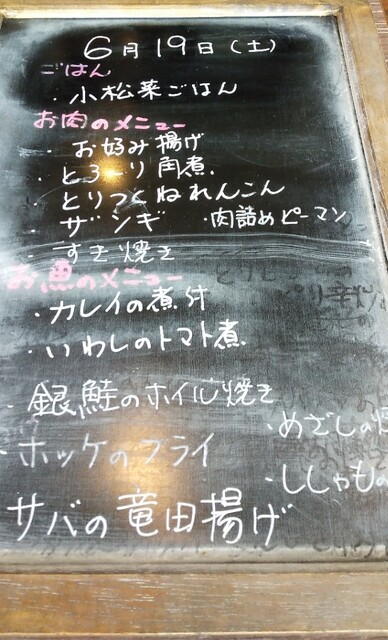 6月19日(土)
ごはん
・小松菜ごはん
お肉のメニュー
・お好み揚げ
・とろーり角煮
・とりつくねれんこん
・ザンギ ・肉詰めピーマン
・すき焼き
お魚のメニュー
・カレイの煮付
・いわしのトマト煮
・銀鮭のホイル焼き
・めざしの
・ホッケのフライ
・ししゃもの
サバの竜田揚げ